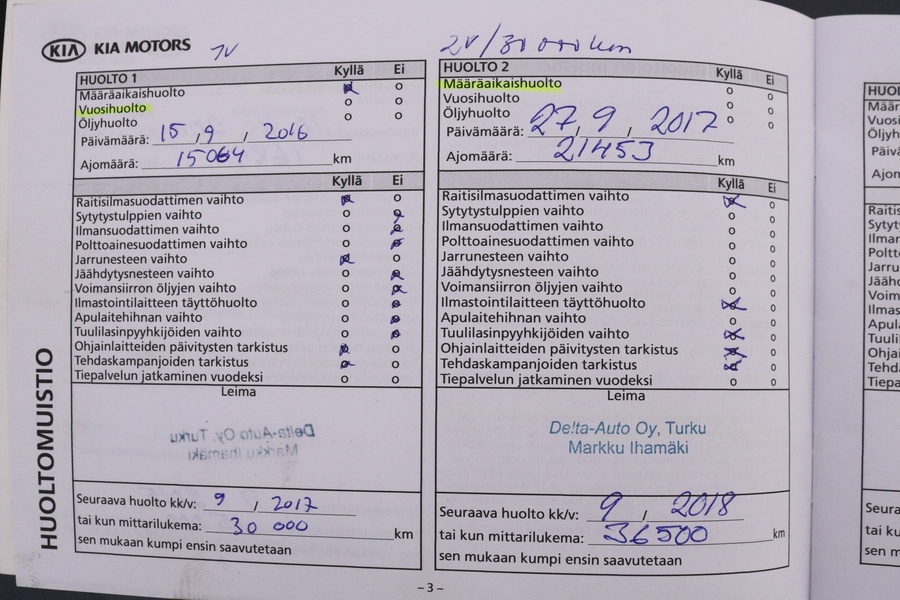 KIA KIA MOTORS
1V
HUOLTO 1 Kyllä Ei
Määräaikaishuolto
Vuosihuolto
Öljyhuolto
Päivämäärä: 15 , 9 , 2016
Ajomäärä: 15064 km
Kyllä Ei
Raitisilmasuodattimen vaihto
Sytytystulppien vaihto
Ilmansuodattimen vaihto
Polttoainesuodattimen vaihto
Jarrunesteen vaihto
Jäähdytysnesteen vaihto
Voimansiirron öljyjen vaihto
Ilmastointilaitteen täyttöhuolto
Apulaitehihnan vaihto
Tuulilasinpyyhkijöiden vaihto
Ohjainlaitteiden päivitysten tarkistus
Tehdaskampanjoiden tarkistus
Tiepalvelun jatkaminen vuodeksi
Leima
Delta-Auto Oy, Turku
Markku Ihamäki
Seuraava huolto kk/v: 9 , 2017
tai kun mittarilukema: 30 000 km
sen mukaan kumpi ensin saavutetaan
2V/30 000 km
HUOLTO 2 Kyllä Ei
Määräaikaishuolto
Vuosihuolto
Öljyhuolto
Päivämäärä: 27 , 9 , 2017
Ajomäärä: 21453 km
Kyllä Ei
Raitisilmasuodattimen vaihto
Sytytystulppien vaihto
Ilmansuodattimen vaihto
Polttoainesuodattimen vaihto
Jarrunesteen vaihto
Jäähdytysnesteen vaihto
Voimansiirron öljyjen vaihto
Ilmastointilaitteen täyttöhuolto
Apulaitehihnan vaihto
Tuulilasinpyyhkijöiden vaihto
Ohjainlaitteiden päivitysten tarkistus
Tehdaskampanjoiden tarkistus
Tiepalvelun jatkaminen vuodeksi
Leima
Delta-Auto Oy, Turku
Markku Ihamäki
Seuraava huolto kk/v: 9 , 2018
tai kun mittarilukema: 36500 km
sen mukaan kumpi ensin saavutetaan
HUOLTOMUISTIO
– 3 –